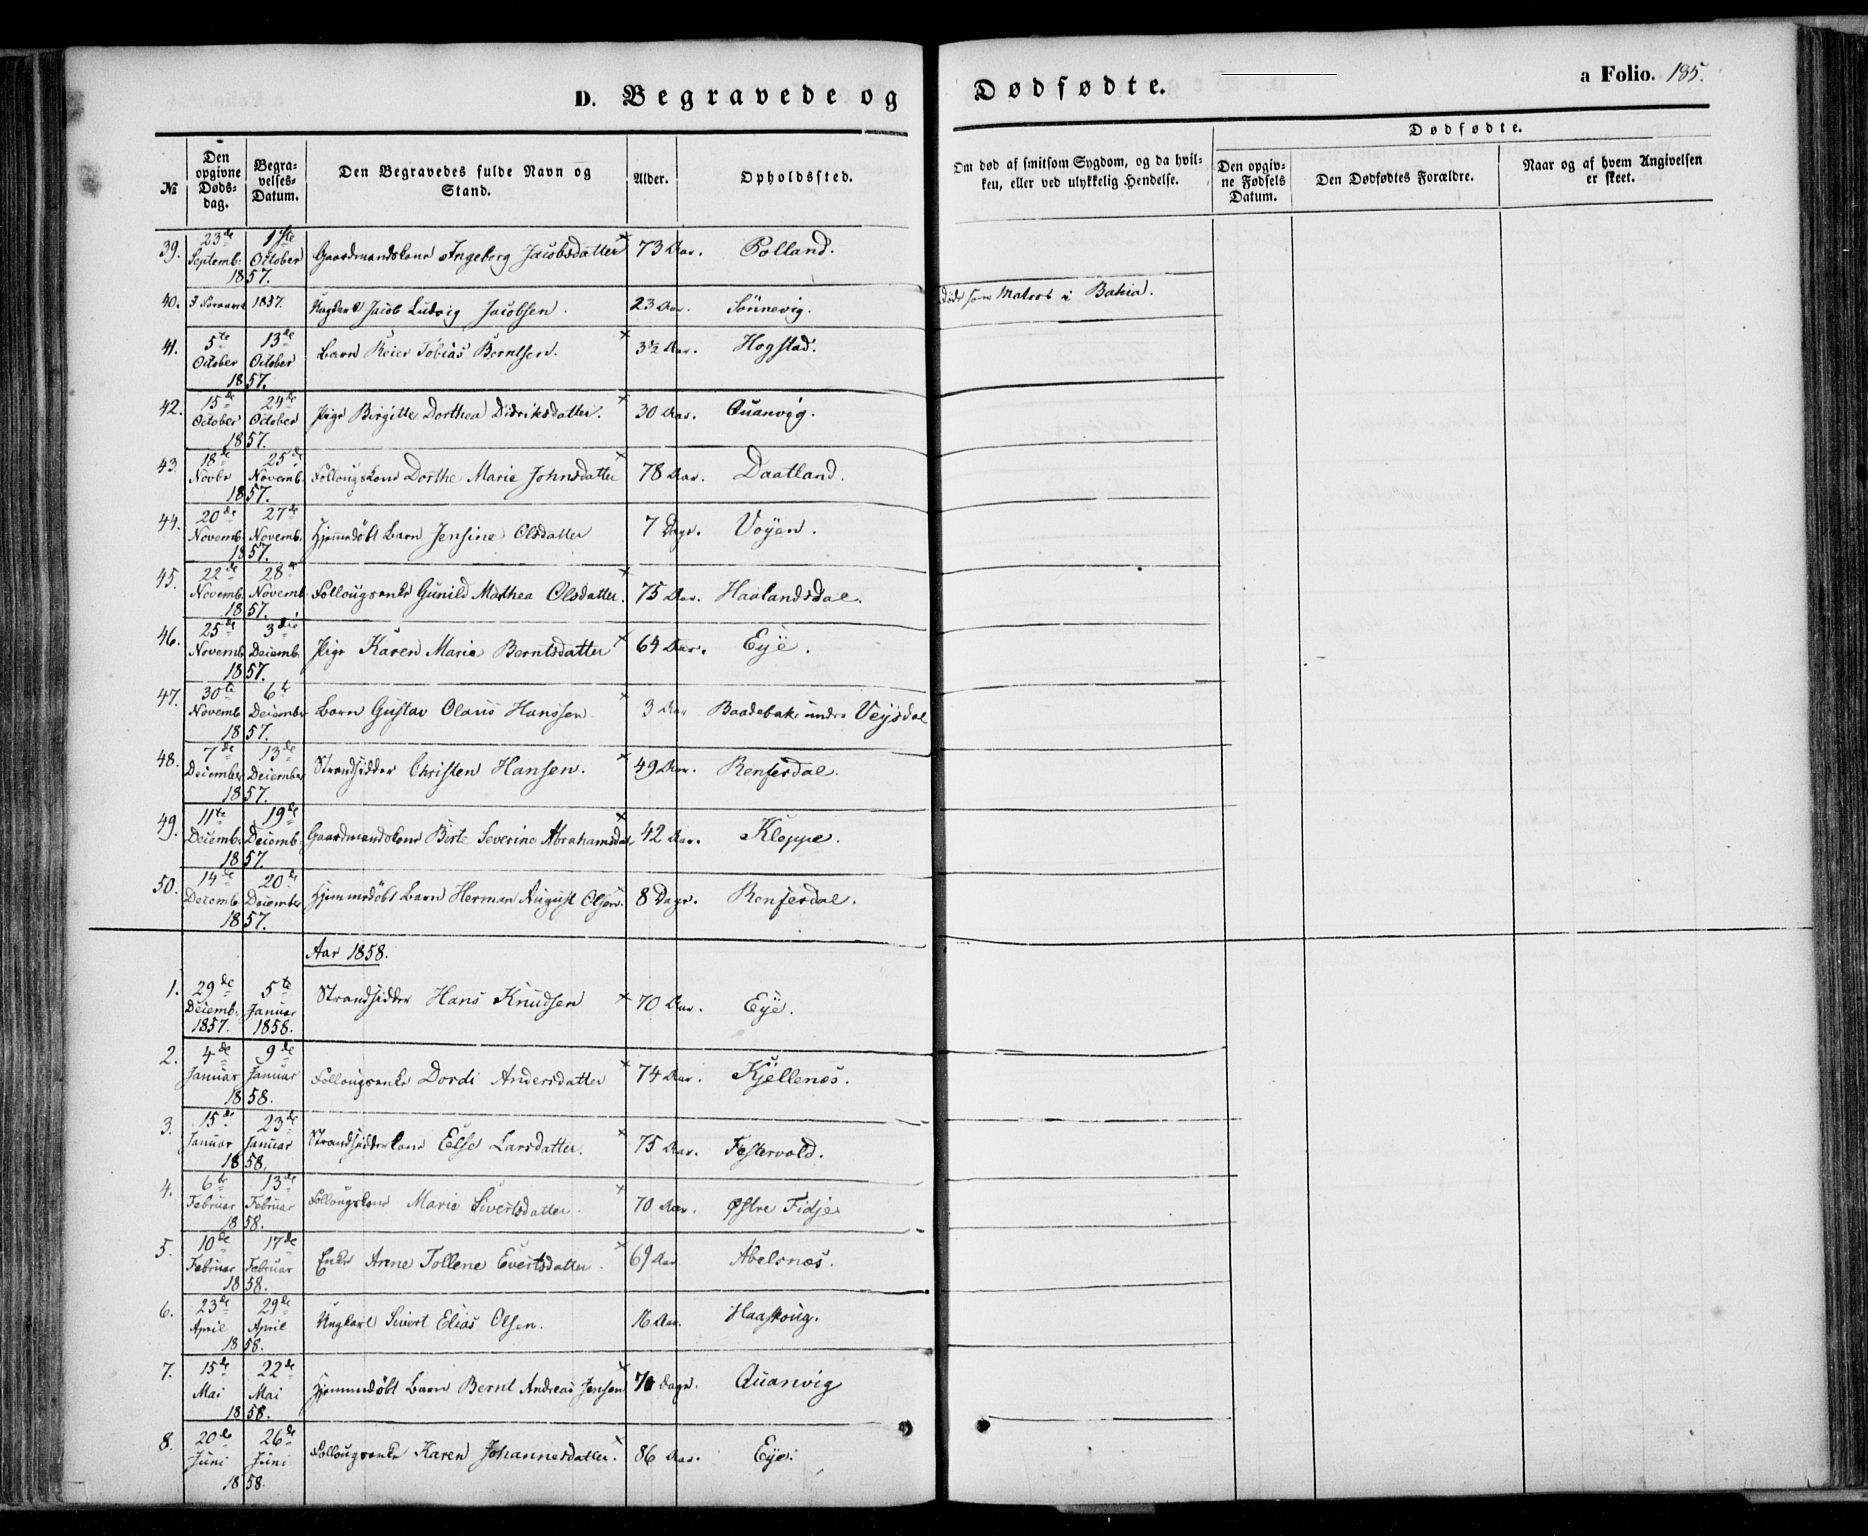 D. Begravede og Dødfødte. a Folio. 185.
№ Den opgivne Døds-dag. Begra-velses-Datum. Den Begravedes fulde Navn og Stand. Alder. Opholdssted. Om død af smitsom Sygdom, og da hvil-ken, eller ved ulykkelig Hendelse. Dødfødte. Den opgiv-ne Fødsels Datum. Den Dødfødtes Forældre. Naar og af hvem Angivelsen er skeet.
39. 23de Septemb: 1ste October 1857. Gaardmandskone Ingeborg Jacobsdatter 73 Aar. Polland.
40. 1857. Jacob Ludvig Jacobsen. 23 Aar. Sönnevig. døde som Matros i Bahia.
41. 5te October 13de October 1857. Barn Reier Tobias Berntsen. 3½ Aar. Hogstad.
42. 15de October 24de October 1857. Pige Birgitte Dorthea Didriksdatter. 30 Aar. Quanvig.
43. 18de Novbr 25de Novemb. 1857. Follougskone Dorthe Marie Johnsdatter 78 Aar. Daatland.
44. 20de Novemb. 27de Novemb. 1857. Hjemmedöbt Barn Jensine Olsdatter 7 Dage. Voyen.
45. 22de Novemb. 28de Novemb. 1857. Follougsenke Gunild Marthea Olsdatter. 75 Aar. Haalandsdal.
46. 25de Novemb. 3die Decemb. 1857. Pige Karen Marie Berntsdatter 64 Aar. Eye.
47. 30te Novemb 6te December 1857. Barn Gustav Olaus Hanssen. 3 Aar Baadebak under Veysdal
48. 7de December 13de December 1857. Strandsidder Christen Hansen. 49 Aar. Renfesdal.
49. 11te Decemb. 19de Decemb. 1857. Gaardmandskone Birte Severine Abrahamsdat 42 Aar. Kloppe.
50. 14de Decemb 20de December 1857. Hjemmedöbt Barn Herman August Olsen. 8 Dage. Renfesdal.
Aar 1858.
1. 29de Decemb. 1857. 5te Januar 1858. Strandsidder Hans Knudsen 70 Aar. Eye.
2. 4de Januar 9de Januar 1858. Follougsenke Dordi Andersdatter 74 Aar. Kjellenes.
3. 15de Januar 23de Januar 1858. Strandsidderkone Else Larsdatter. 75 Aar. Festervold.
4. 6te Februar 13de Februar 1858. Follougskone Marie Sivertsdatter. 70 Aar. Østre Fidje
5. 10de Februar 17de Februar 1858. Enke Anne Tollene Evertsdatter. 69 Aar Abelsnes.
6. 23de April 29de April 1858. Ungkarl Sivert Elias Olsen. 16 Aar. Haaskoug.
7. 15de Mai 22de Mai 1858. Hjemmedöbt Barn Bernt Andreas Jensen dage. Quanvig
8. 20de Juni 26de Juni 1858. Follougsenke Karen Johannesdatter. 86 Aar. Eye.